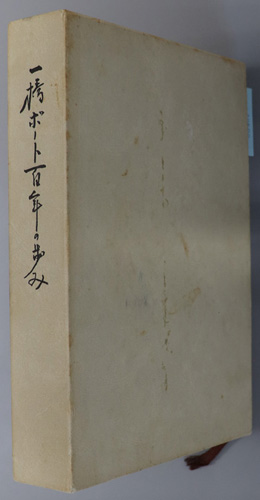 一橋ボート百年の歩み